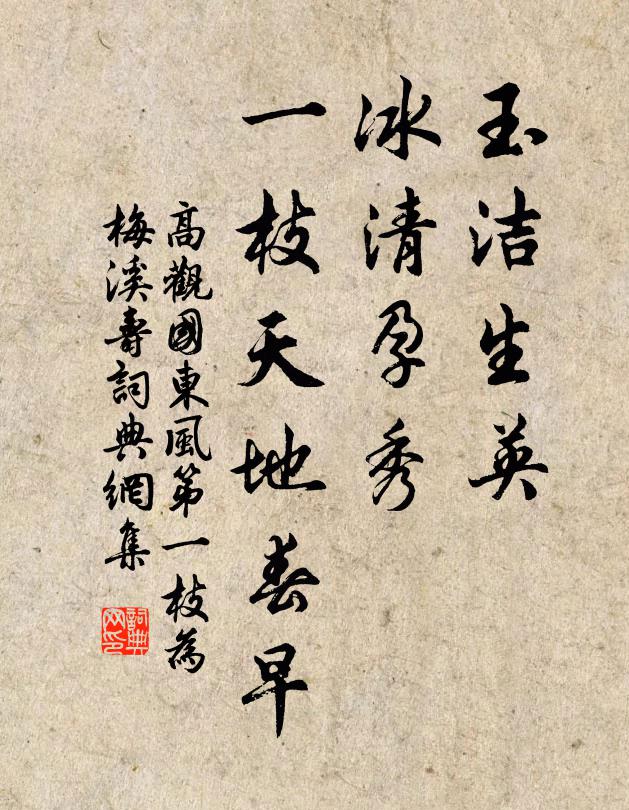 玉洁生英
冰清孕秀
一枝天地春早
高觀國東風第一枝為
梅溪壽詞典網集
詞典
网印